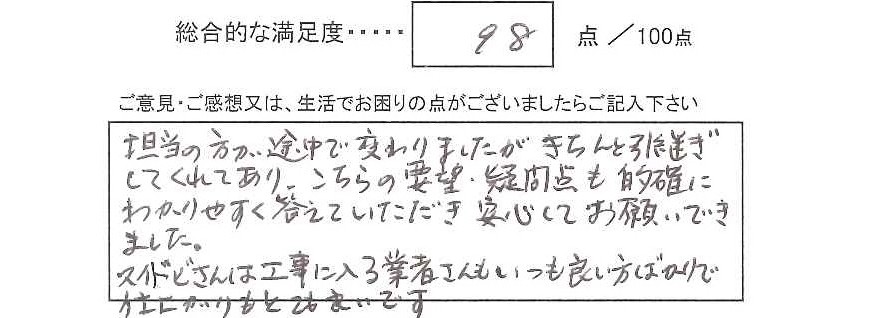 総合的な満足度・・・・・ 98 点 ／100点
ご意見・ご感想又は、生活でお困りの点がございましたらご記入下さい
担当の方が、途中で変わりましたがきちんと引継ぎ
してくれてあり、こちらの要望・疑問点も的確に
わかりやすく答えていただき安心してお願いでき
ました。
スイドビさんは工事に入る業者さんもいつも良い方ばかりで
仕上がりもとても良いです